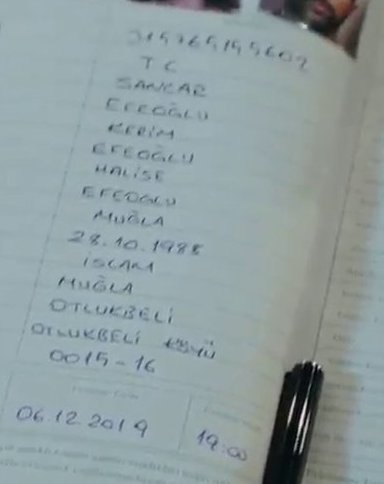 TC
SANCAR
EFEOĞLU
KERİM
EFEOĞLU
HALİSE
EFEOĞLU
MUĞLA
28.10.1988
İSLAM
MUĞLA
OTLUKBELİ
OTLUKBELİ KÖYÜ
0015-16
06.12.2019
19:00